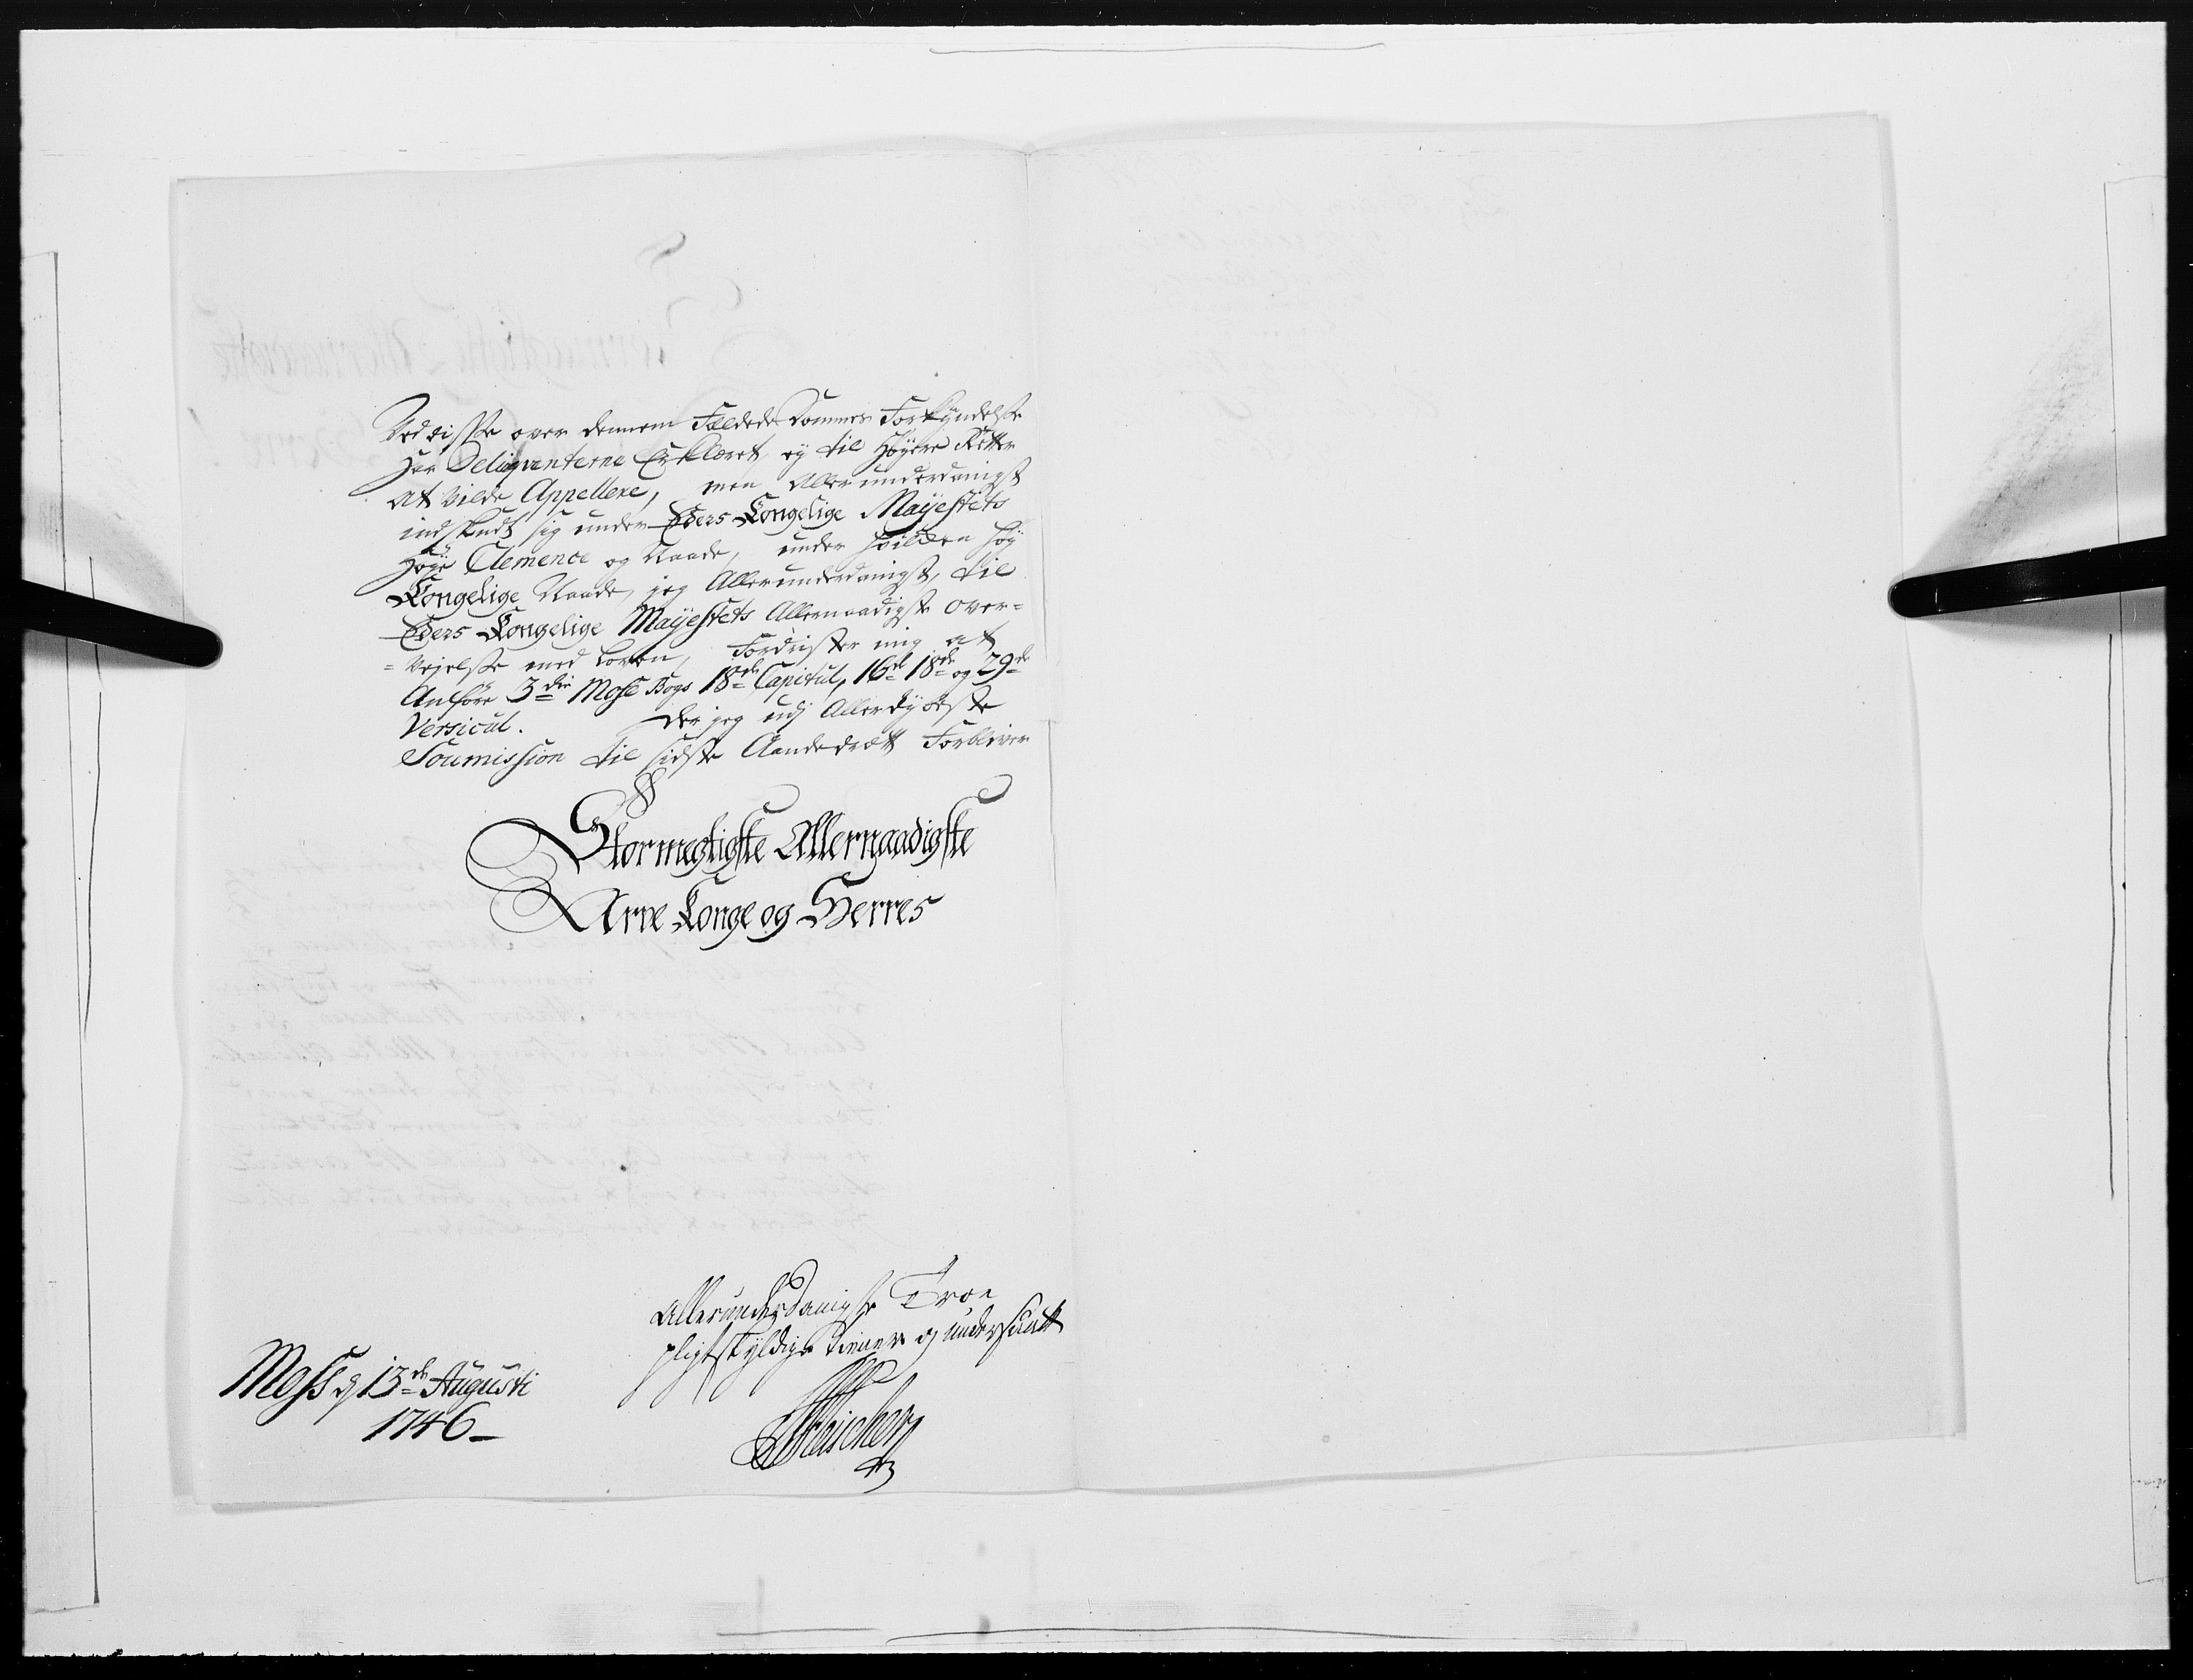 Ved disse over dennem Fældede Dommes Forkyndelse
har Deliqventerne Erklæret ey til Høyere Retter
at vilde Appellere, men Allerunderdanigst
indskudt sig under Eders Kongelige Mayestets
Høye Clemence og Naade, under hvilken høy
Kongelige Naade, jeg Allerunderdanigst, til
Eders Kongelige Mayestets Allernaadigste over=
=vejelse med Loven, Fordrister mig at
Anføre 3die Mose Bogs 18de Capitul, 16de 18de og 29de
Versicul. Der jeg udj Allerdybeste
Soumission til sidste Aandedrætt Forbliver
Stormægtigste Allernaadigste
Arve Konge og Herres
Allerunderdanigste Troe
pligtskyldigste tiener og undersaatt
Moss d 13de Augusti
1746
Fleischer